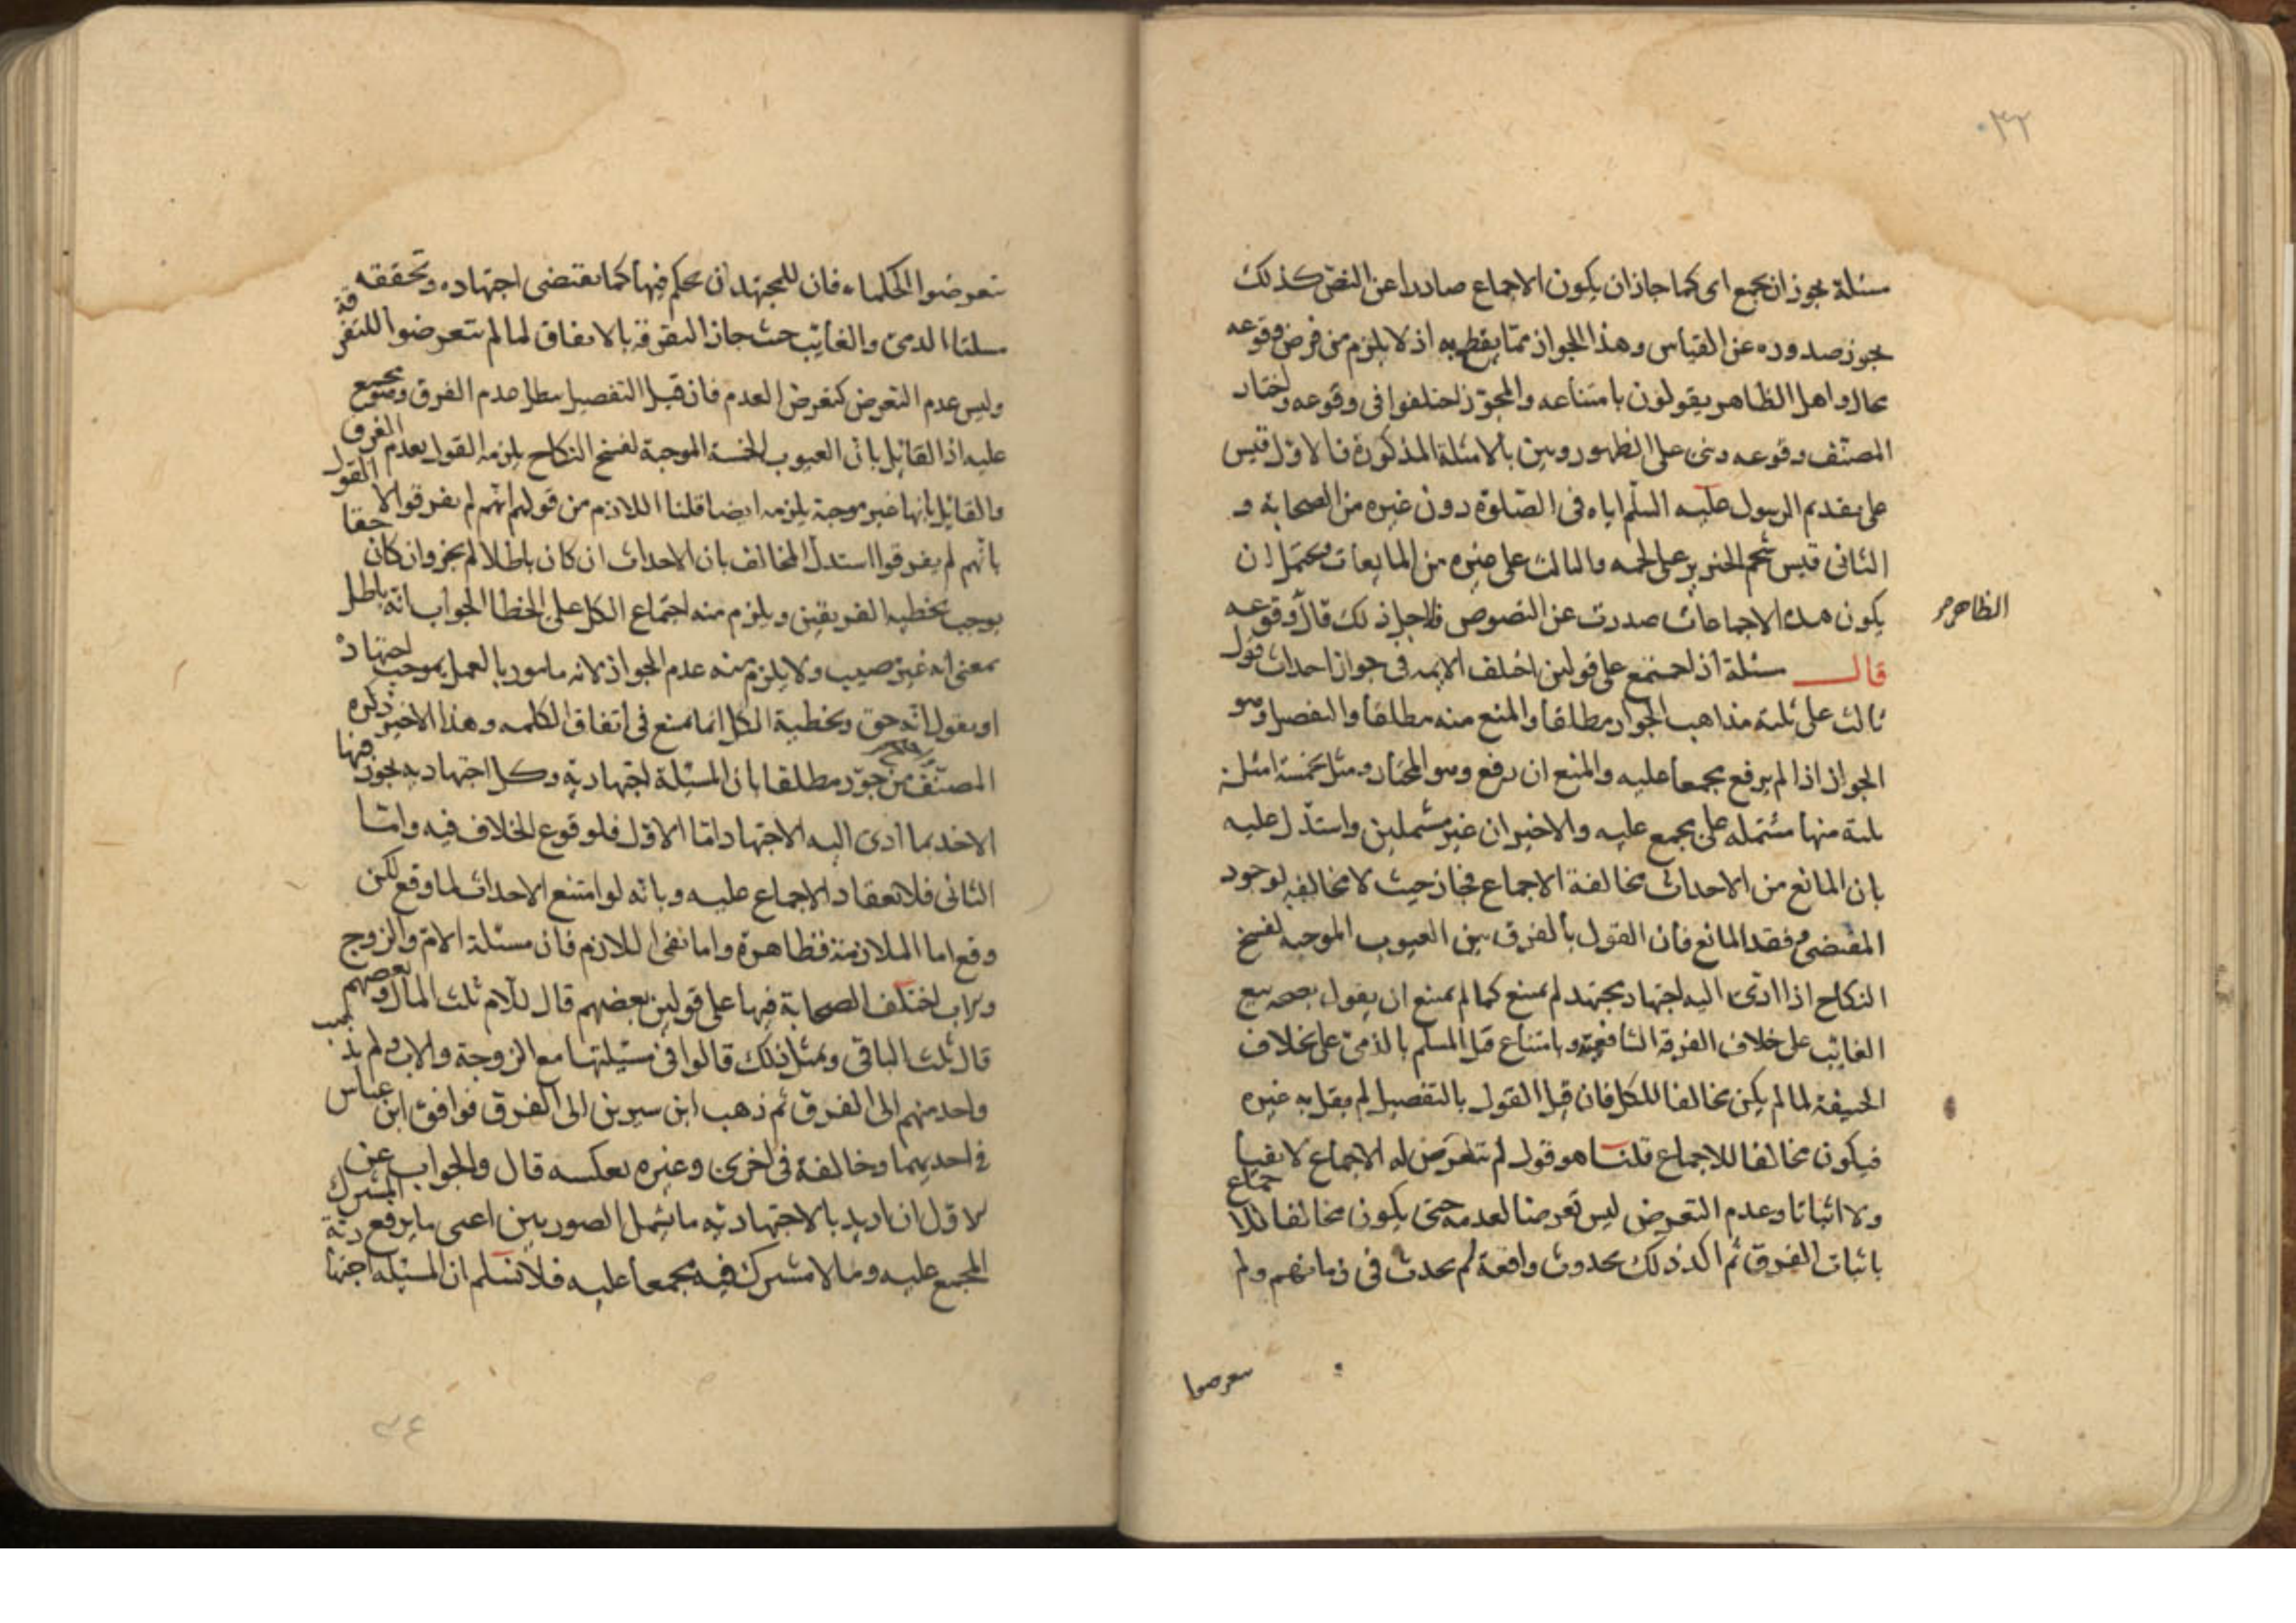 ٣٣
مسئلة يجوز ان يجمع اى كما جاز ان يكون الاجماع صادرا عن النص كذلك
يجوز صدوره عن القياس وهذا الجواز مما يقطع به اذ لا يلزم من فرض وقوعه
محال واهل الظاهر يقولون بامتناعه والمجوز اختلفوا فى وقوعه واختار
المصنف وقوعه وبنى على الظهور وبين بالامثلة المذكورة فالاول قيس
على تقديم الرسول عليه السلم اياه فى الصلوة دون غيره من الصحابة و
الثانى قيس شحم الخنزير على لحمه والثالث على غيره من المايعات ويحتمل ان
يكون هذه الاجماعات صدرت عن النصوص فلاجل ذلك قال وقوعه
الظاهر
قال مسئلة اذا اجمع على قولين اختلف الايمه فى جواز احداث قول
ثالث على ثلثة مذاهب الجواز مطلقا والمنع منه مطلقا والتفصيل وهو
الجواز اذا لم يرفع مجمعا عليه والمنع ان رفع وهو المختار ومثل بخمسة امثلة
ثلثة منها مشتمله على مجمع عليه والاخيران غير مشتملين واستدل عليه
بان المانع من الاحداث مخالفة الاجماع فجاز حيث لا مخالفه لوجود
المقتضى وفقد المانع فان القول بالفرق بين العيوب الموجبه لفسخ
النكاح اذا ادى اليه اجتهاد مجتهد لم يمنع كما لم يمنع ان يقول بصحه بيع
الغائب على خلاف الفرقه الشافعية وبامتناع قتل المسلم بالذمى على خلاف
الحنيفة لما لم يكن مخالفا للكل فان قيل القول بالتفصيل لم يقل به غيره
فيكون مخالفا للاجماع قلنا هو قول لم تتعرض له الاجماع لا نفيا
ولا اثباتا وعدم التعرض ليس تعرضا لعدمه حتى يكون مخالفا للاجماع
باثبات الفرق ثم اكد ذلك بحدوث واقعة لم يحدث فى زمانهم ولم
تعرضوا
تعرضوا الحكلماء فان للمجتهد ان يحكم فيها كما يقتضى اجتهاده وتحققه
مسلتا الذمى والغائب حيث جاز التفرقة بالاتفاق لما لم يتعرضوا للتفرقة
وليس عدم التعرض كتعرض العدم فان قيل التفصيل مطلقا عدم الفرق ومجمع
عليه اذ القائل بان العيوب الخمسة الموجبة لفسخ النكاح يلزمه القول بعدم الفرق
والقائل بانها غير موجبة يلزمه ايضا قلنا اللازم من قولهم انهم لم يفرقوا لا القول
بانهم لم يفرقوا استدل المخالف بان الاحداث ان كان باطلا لم يجز وان كان حقا
يوجب تخطية الفريقين ويلزم منه اجتماع الكل على الخطا الجواب انه باطل
بمعنى انه غير مصيب ولا يلزم منه عدم الجواز لانه مامور بالعمل بموجب اجتهاده
او نقول انه حق وتخطية الكل انما يمنع فى اتفاق الكلمه وهذا الاخير ذكره
المصنف من جوز مطلقا بان المسئلة اجتهادية وكل اجتهاديه يجوز فيها
الاخذ بما ادى اليه الاجتهاد اما الاول فلوقوع الخلاف فيه واما
الثانى فلانعقاد الاجماع عليه وبانه لو امتنع الاحداث لما وقع لكن
وقع اما الملازمة فظاهرة واما نفى اللازم فان مسئلة الام والزوج
واب اختلف الصحابة فيها على قولين بعضهم قال للام ثلث المال وبعضهم
قال ثلث الباقى وبمثل ذلك قالوا فى مسئلتها مع الزوجة والاب ولم يذهب
واحد منهم الى الفرق ثم ذهب ابن سيرين الى الفرق فوافق ابن عباس
فى احديهما وخالفة فى اخرى وغيره بعكسه قال والجواب عن
الاول ان اريد بالاجتهاديه ما يشمل الصورتين اعنى ما يرفع المشترك
المجمع عليه وما لا مشترك فيه مجمعا عليه فلا نسلم ان المسئله اجتهادية
٣٤